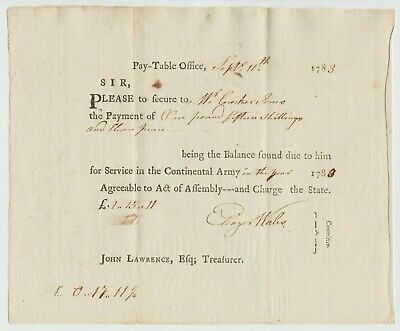 Pay-Table Office, Sept. 11th 1783
SIR,
PLEASE to secure to Wm Crocker Jones
the Payment of One pound fifteen Shillings
and eleven pence
being the Balance found due to him
for Service in the Continental Army in the year 1783
Agreeable to Act of Assembly---and Charge the State.
£.1..15..11
Eleazer Wales
JOHN LAWRENCE, Esq; Treasurer.
£ 0..17..11½